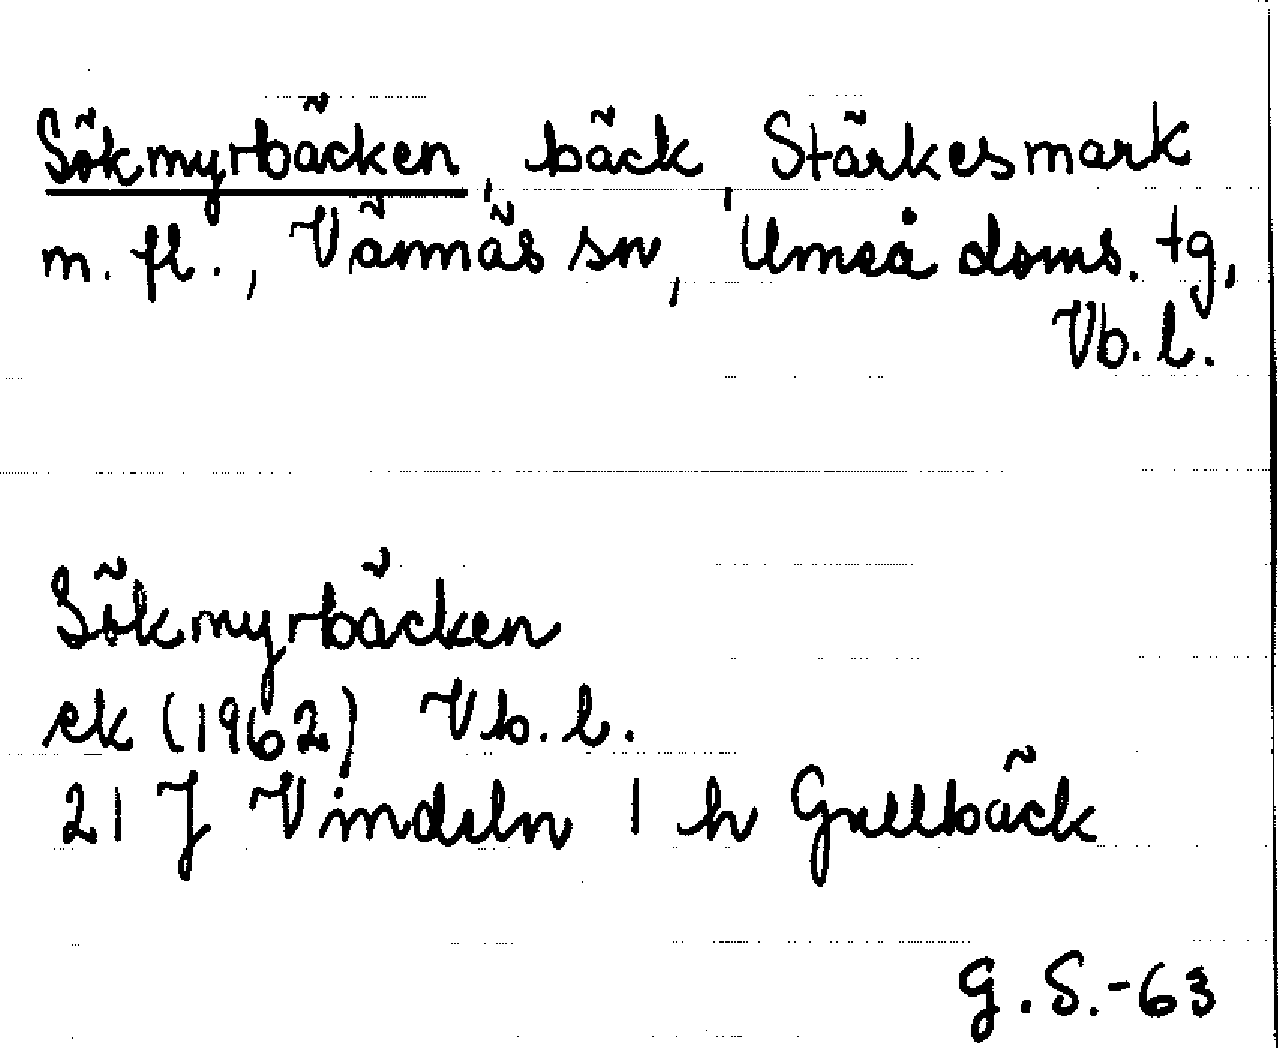 Sökmyrbäcken, bäck, Stärkesmark
m. fl., Vännäs sn, Umeå doms. tg,
Vb. l.
Sökmyrbäcken
ek (1962) Vb. l.
21 J Vindeln 1 h Gullbäck
G. S. -63